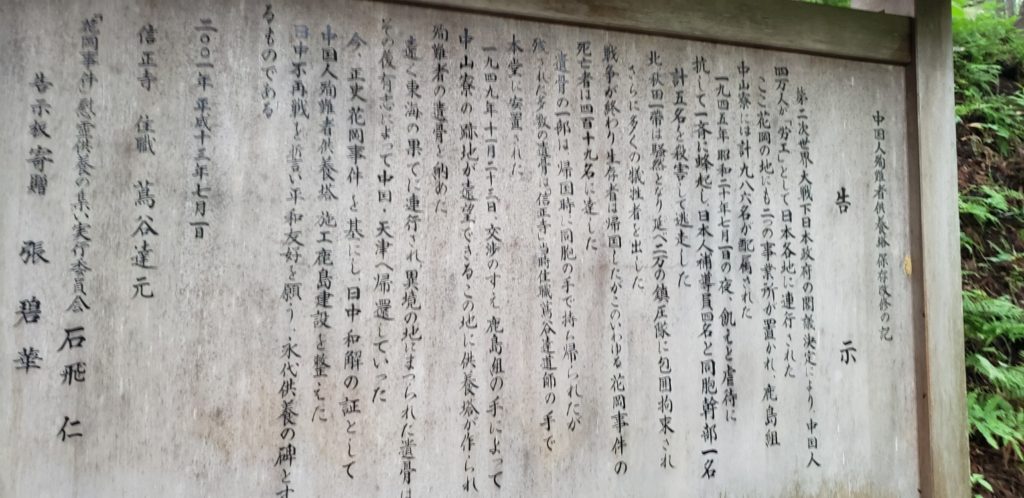 告示
中国人殉難者供養塔保存改修の記
第二次世界大戦下日本政府の閣議決定により、中国人
四万人が「労工」として日本各地に連行された
ここ花岡の地にも二つの事業所が置かれ、鹿島組
中山寮には計九八六名が配属された
一九四五年昭和二十年七月一日の夜、飢えと虐待に
抗して一斉に蜂起し日本人補導員四名と同胞幹部一名
計五名を殺害して逃走した
北秋田一帯は騒然となり延べ二万の鎮圧隊に包囲拘束され
さらに多くの犠牲者を出した
戦争が終わり生存者は帰国したがこのいわゆる花岡事件の
死亡者は四百十九名に達した
遺骨の一部は帰国時に同胞の手で持ち帰られたが
残された多数の遺骨は信正寺当時住職蔦谷達道師の手で
本堂に安置された
一九四九年十一月二十三日、交渉のすえ鹿島組の手によって
中山寮の跡地が遠望できるこの地に供養塔が作られ
殉難者の遺骨を納めた
遠く東海の果てに連行され異境の地にまつられた遺骨は
その後有志によって中国・天津へ帰還していった
今、正史花岡事件を基にし日中和解の証として
中国人殉難者供養塔施工鹿島建設を整えた
日中不再戦を誓い平和友好を願う永代供養の碑とす
るものである
二〇〇一年平成十三年七月一日
信正寺 住職 蔦谷達元
「花岡事件」慰霊供養の集い実行委員会 石飛仁
告示板寄贈 張碧華